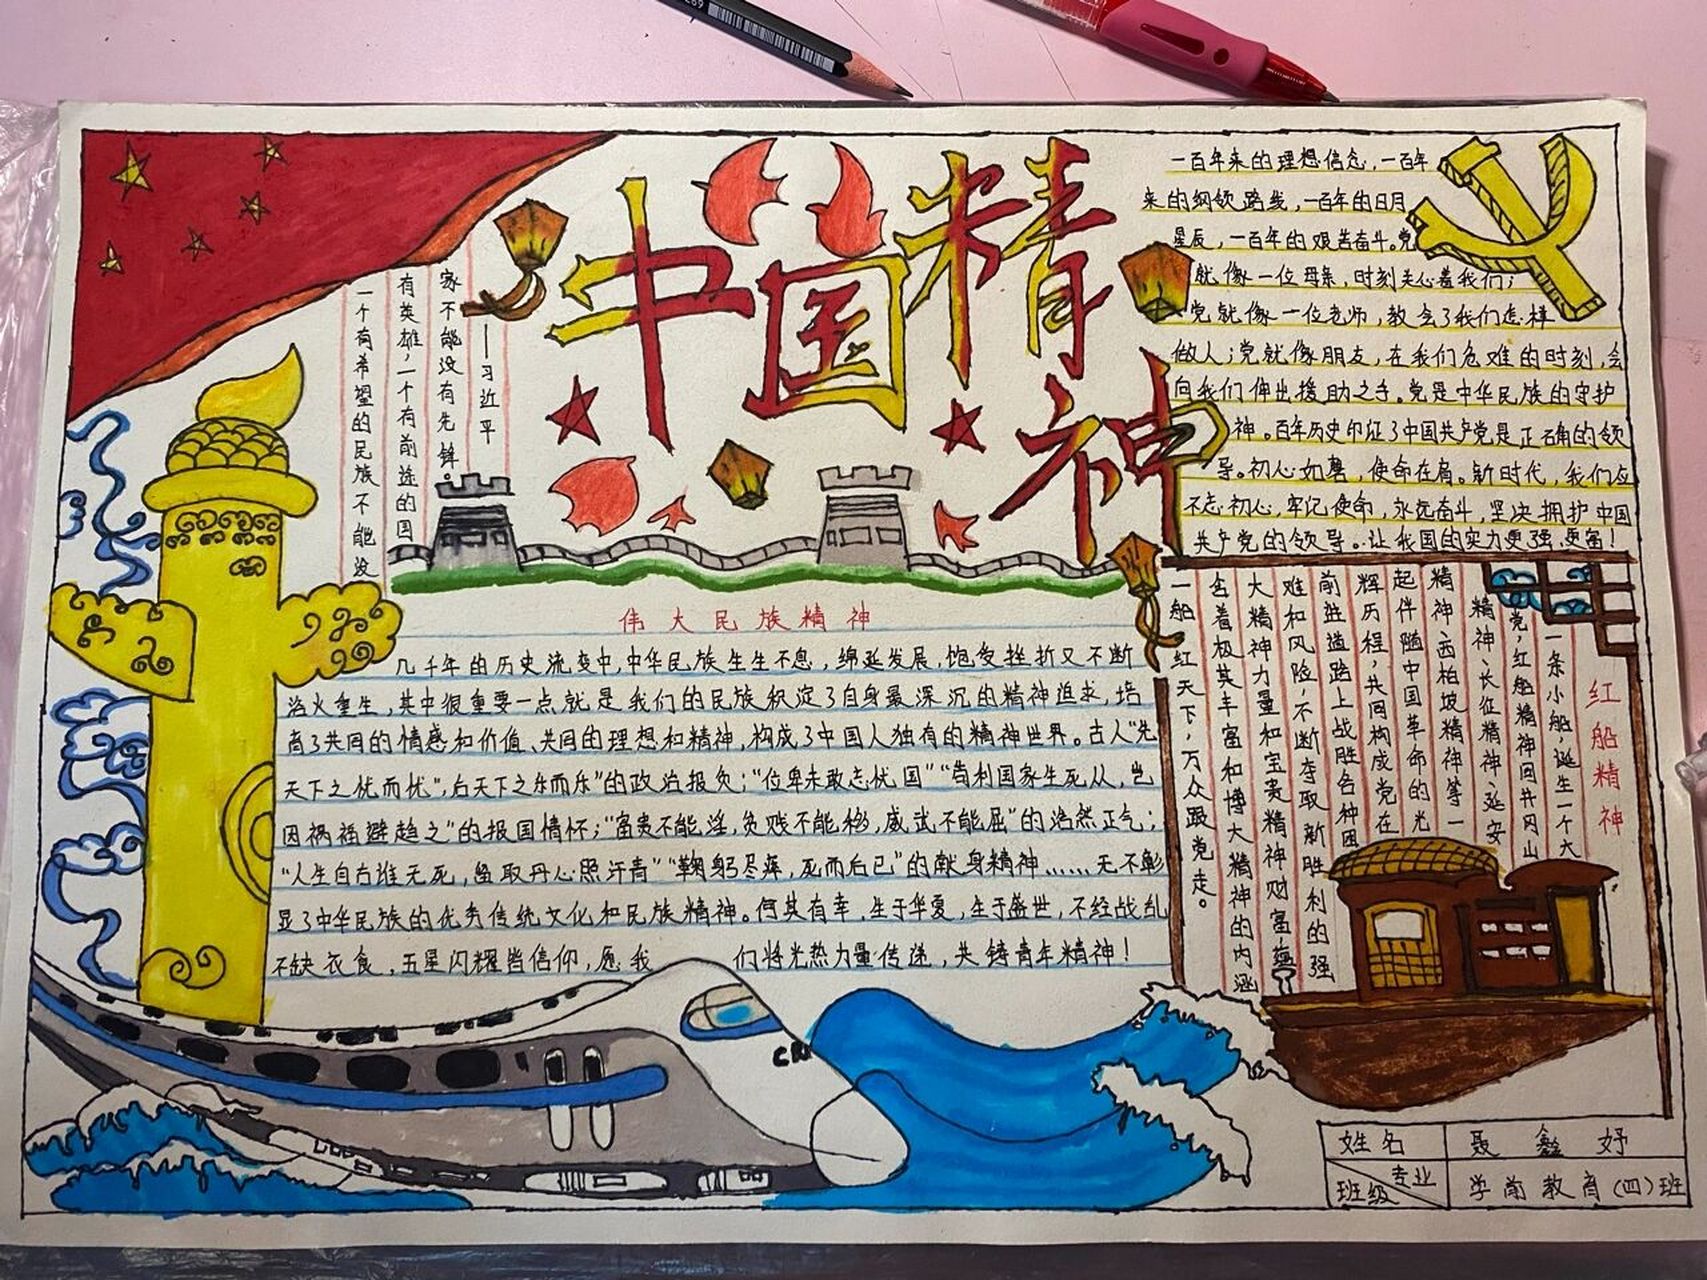 中国精神
一个有希望的民族不能没
有英雄，一个有前途的国
家不能没有先锋。
——习近平
一百年来的理想信念，一百年
来的纲领路线，一百年的日月
星辰，一百年的艰苦奋斗。党
就像一位母亲，时刻关心着我们；
党就像一位老师，教会了我们怎样
做人；党就像朋友，在我们危难的时刻，会
向我们伸出援助之手。党是中华民族的守护
神。百年历史印证了中国共产党是正确的领
导。初心如磐，使命在肩。新时代，我们应
不忘初心，牢记使命，永远奋斗，坚决拥护中国
共产党的领导。让我国的实力更强、更富！
伟大民族精神
几千年的历史流变中，中华民族生生不息，绵延发展，饱受挫折又不断
浴火重生，其中很重要一点就是我们的民族积淀了自身最深沉的精神追求，培
育了共同的情感和价值、共同的理想和精神，构成了中国人独有的精神世界。古人“先
天下之忧而忧”，后天下之乐而乐”的政治报负；“位卑未敢忘忧国”“苟利国家生死从，岂
因祸福避趋之”的报国情怀；“富贵不能淫，贫贱不能移，威武不能屈”的浩然正气；
“人生自古谁无死，留取丹心照汗青”“鞠躬尽瘁，死而后已”的献身精神……无不彰
显了中华民族的优秀传统文化和民族精神。何其有幸，生于华夏，生于盛世，不经战乱
不缺衣食，五星闪耀皆信仰，愿我们将光热力量传递，共铸青年精神！
红船精神
一条小船，诞生一个大
党，红船精神同井冈山
精神、长征精神、延安
精神、西柏坡精神等一
起伴随中国革命的光
辉历程，共同构成党在
前进道路上战胜各种困
难和风险，不断夺取新胜利的强
大精神力量和宝贵精神财富，蕴
含着极其丰富和博大精神的内涵
一船红天下，万众跟党走。
CR
姓名 聂鑫妤
专业班级 学前教育（四）班